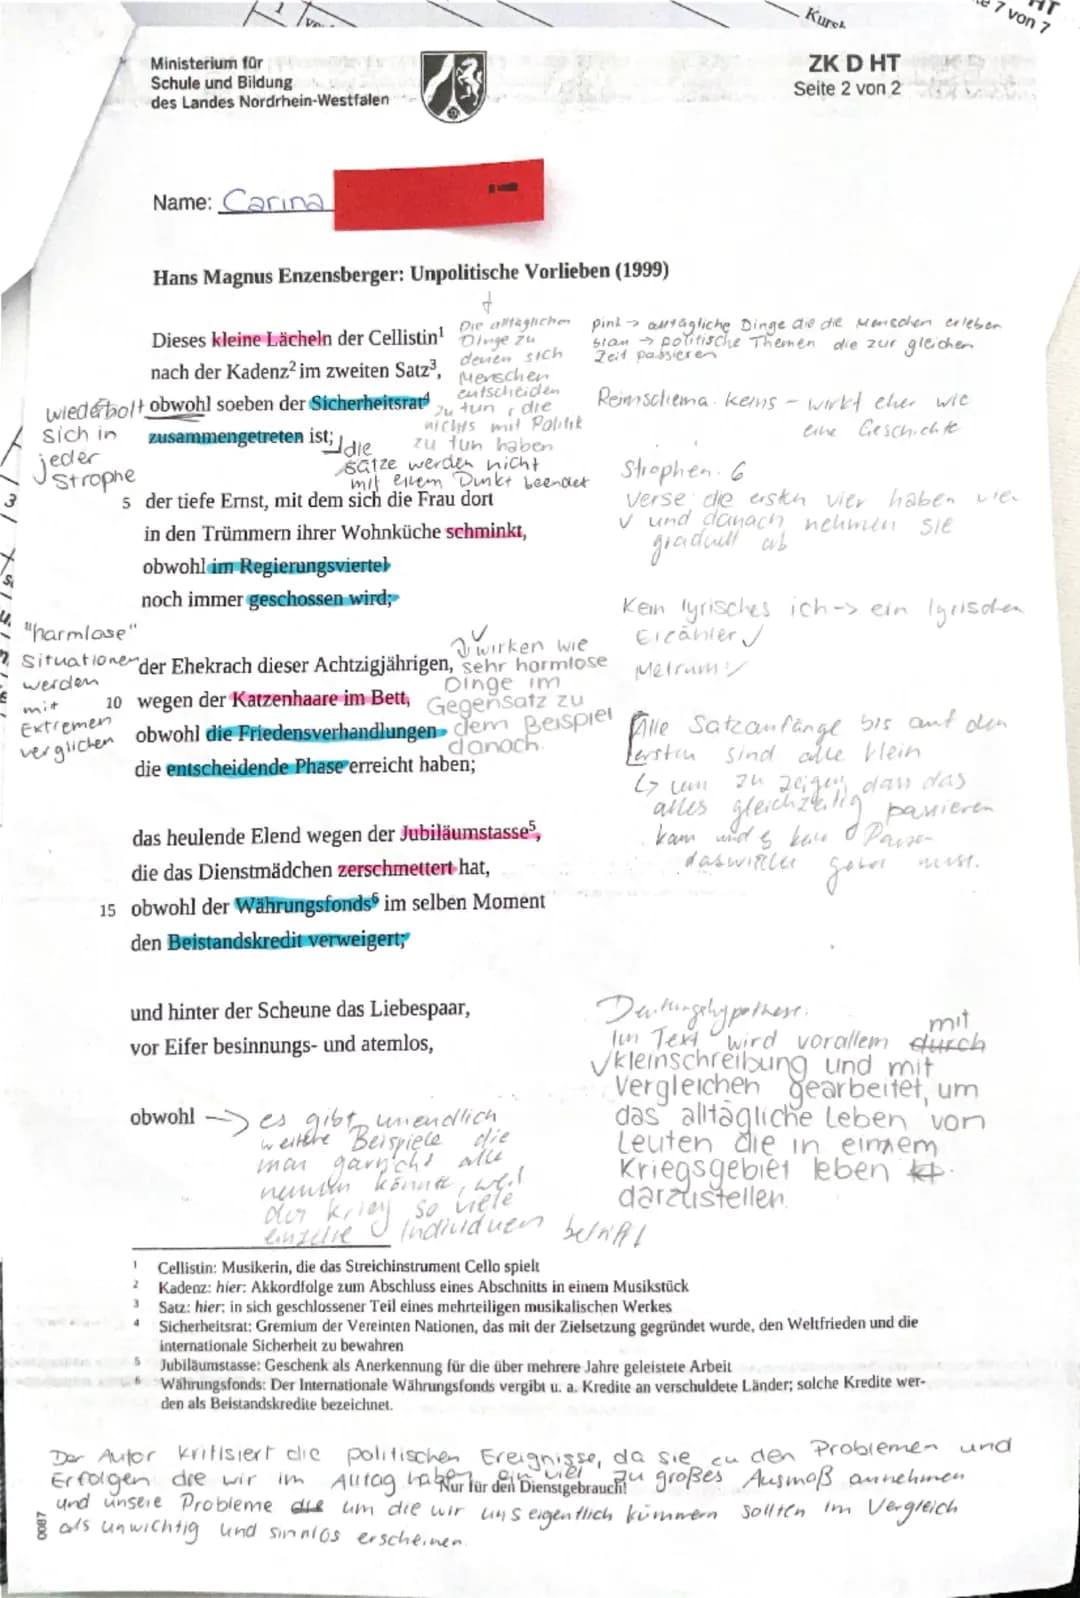 Kursk
7 von 7
Ministerium für
Schule und Bildung
des Landes Nordrhein-Westfalen
ZK D HT
Seite 2 von 2
Name: Carina
Hans Magnus Enzensberger: Unpolitische Vorlieben (1999)
Dieses kleine Lächeln der Cellistin¹
nach der Kadenz² im zweiten Satz³,
obwohl soeben der Sicherheitsrat⁴
zusammengetreten ist;
Die alltäglichen
Dinge zu
denen sich
Menschen
entscheiden
zu tun, die
nichts mit Politik
zu tun haben
pink -> alltägliche Dinge die die Menschen erleben
blau -> politische Themen die zur gleichen
Zeit passieren
Reimschema: keins - wirkt eher wie
eine Geschichte
wiederholt
sich in
jeder
Strophe
die
sätze werden nicht
mit einem Punkt beendet
Strophen: 6
Verse: die ersten vier haben vier
und danach nehmen sie
graduell ab
5 der tiefe Ernst, mit dem sich die Frau dort
in den Trümmern ihrer Wohnküche schminkt,
obwohl im Regierungsviertel
noch immer geschossen wird;
Kein lyrisches ich -> ein lyrischer
Erzähler
Metrum:
"harmlose"
Situationen
werden
mit
Extremen
verglichen
der Ehekrach dieser Achtzigjährigen,
10 wegen der Katzenhaare im Bett,
obwohl die Friedensverhandlungen
die entscheidende Phase erreicht haben;
wirken wie
sehr harmlose
Dinge im
Gegensatz zu
dem Beispiel
danach.
Alle Satzanfänge bis auf den
ersten sind alle klein
↳ um zu zeigen, dass das
alles gleichzeitig passieren
kann und es keine Pause
dazwischen geben muss.
das heulende Elend wegen der Jubiläumstasse⁵,
die das Dienstmädchen zerschmettert hat,
15 obwohl der Währungsfonds⁶ im selben Moment
den Beistandskredit verweigert;
und hinter der Scheune das Liebespaar,
vor Eifer besinnungs- und atemlos,
obwohl
-> es gibt unendlich
weitere Beispiele die
man garnicht alle
nennen könnte, weil
der Krieg so viele
einzelne Individuen betrifft
Deutungshypothese:
Im Text wird vorallem durch mit
kleinschreibung und mit
Vergleichen gearbeitet, um
das alltägliche Leben von
Leuten die in einem
Kriegsgebiet leben
darzustellen.
1 Cellistin: Musikerin, die das Streichinstrument Cello spielt
2 Kadenz: hier: Akkordfolge zum Abschluss eines Abschnitts in einem Musikstück
3 Satz: hier: in sich geschlossener Teil eines mehrteiligen musikalischen Werkes
4 Sicherheitsrat: Gremium der Vereinten Nationen, das mit der Zielsetzung gegründet wurde, den Weltfrieden und die
internationale Sicherheit zu bewahren
5 Jubiläumstasse: Geschenk als Anerkennung für die über mehrere Jahre geleistete Arbeit
6 Währungsfonds: Der Internationale Währungsfonds vergibt u. a. Kredite an verschuldete Länder; solche Kredite wer-
den als Beistandskredite bezeichnet.
Der Autor kritisiert die politischen Ereignisse, da sie zu den Problemen und
Erfolgen die wir im Alltag haben ein viel zu großes Ausmaß annehmen
Nur für den Dienstgebrauch!
und unsere Probleme die um die wir uns eigentlich kümmern sollten im Vergleich
als unwichtig und sinnlos erscheinen.
0087